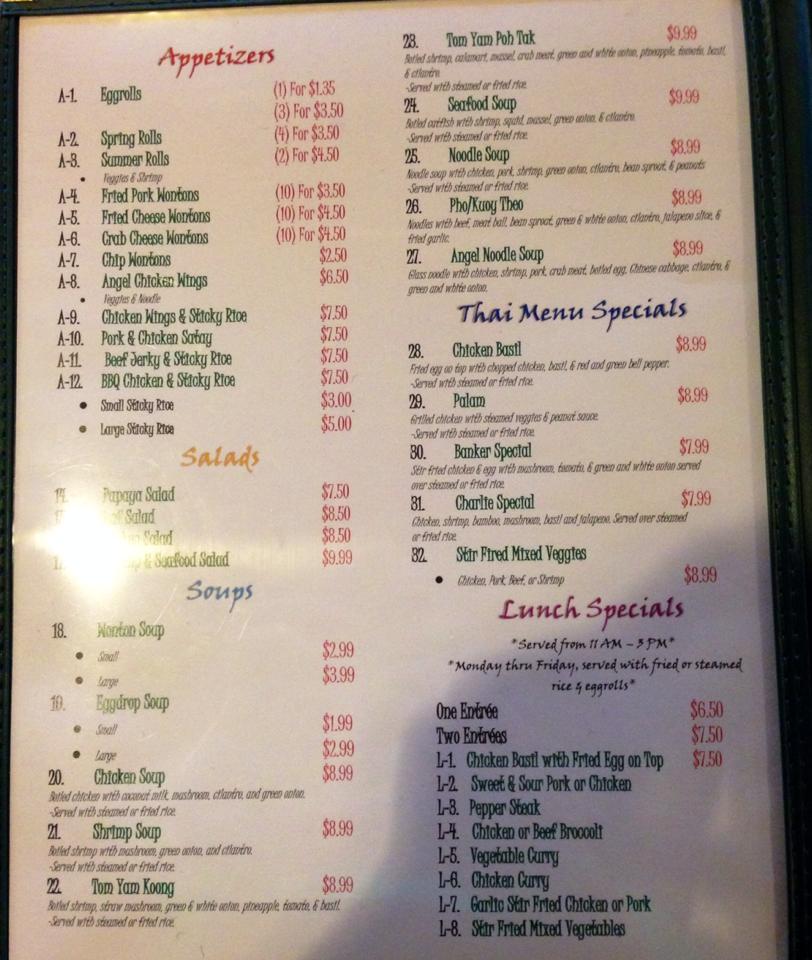 Appetizers
A-1. Eggrolls (1) For $1.35
(3) For $3.50
A-2. Spring Rolls (4) For $3.50
A-3. Summer Rolls (2) For $4.50
• Veggies & Shrimp
A-4. Fried Pork Wontons (10) For $3.50
A-5. Fried Cheese Wontons (10) For $4.50
A-6. Crab Cheese Wontons (10) For $4.50
A-7. Chip Wontons $2.50
A-8. Angel Chicken Wings $6.50
• Veggies & Noodle
A-9. Chicken Wings & Sticky Rice $7.50
A-10. Pork & Chicken Satay $7.50
A-11. Beef Jerky & Sticky Rice $7.50
A-12. BBQ Chicken & Sticky Rice $7.50
• Small Sticky Rice $3.00
• Large Sticky Rice $5.00
Salads
Papaya Salad $7.50
Salad $8.50
Salad $8.50
& Seafood Salad $9.99
Soups
18. Wonton Soup
• Small $2.99
• Large $3.99
19. Eggdrop Soup
• Small $1.99
• Large $2.99
20. Chicken Soup $8.99
Boiled chicken with coconut milk, mushroom, cilantro, and green onion.
-Served with steamed or fried rice.
21. Shrimp Soup $8.99
Boiled shrimp with mushroom, green onion, and cilantro.
-Served with steamed or fried rice.
22. Tom Yam Koong $8.99
Boiled shrimp, straw mushroom, green & white onion, pineapple, tomato, & basil.
-Served with steamed or fried rice.
23. Tom Yam Poh Tak $9.99
Boiled shrimp, calamari, mussel, crab meat, green and white onion, pineapple, tomato, basil,
& cilantro.
-Served with steamed or fried rice.
24. Seafood Soup $9.99
Boiled catfish with shrimp, squid, mussel, green onion, & cilantro.
-Served with steamed or fried rice.
25. Noodle Soup $8.99
Noodle soup with chicken, pork, shrimp, green onion, cilantro, bean sprout, & peanuts
-Served with steamed or fried rice.
26. Pho/Kuoy Theo $8.99
Noodles with beef, meat ball, bean sprout, green & white onion, cilantro, jalapeno slice, &
fried garlic.
27. Angel Noodle Soup $8.99
Glass noodle with chicken, shrimp, pork, crab meat, boiled egg, Chinese cabbage, cilantro, &
green and white onion.
Thai Menu Specials
28. Chicken Basil $8.99
Fried egg on top with chopped chicken, basil, & red and green bell pepper.
-Served with steamed or fried rice.
29. Palam $8.99
Grilled chicken with steamed veggies & peanut sauce.
-Served with steamed or fried rice.
30. Banker Special $7.99
Stir fried chicken & egg with mushroom, tomato, & green and white onion served
over steamed or fried rice.
31. Charlie Special $7.99
Chicken, shrimp, bamboo, mushroom, basil and jalapeno. Served over steamed
or fried rice.
32. Stir Fired Mixed Veggies
• Chicken, Pork, Beef, or Shrimp $8.99
Lunch Specials
*Served from 11 AM – 3 PM*
*Monday thru Friday, served with fried or steamed
rice & eggrolls*
One Entrée $6.50
Two Entrées $7.50
L-1. Chicken Basil with Fried Egg on Top $7.50
L-2. Sweet & Sour Pork or Chicken
L-3. Pepper Steak
L-4. Chicken or Beef Broccoli
L-5. Vegetable Curry
L-6. Chicken Curry
L-7. Garlic Stir Fried Chicken or Pork
L-8. Stir Fried Mixed Vegetables